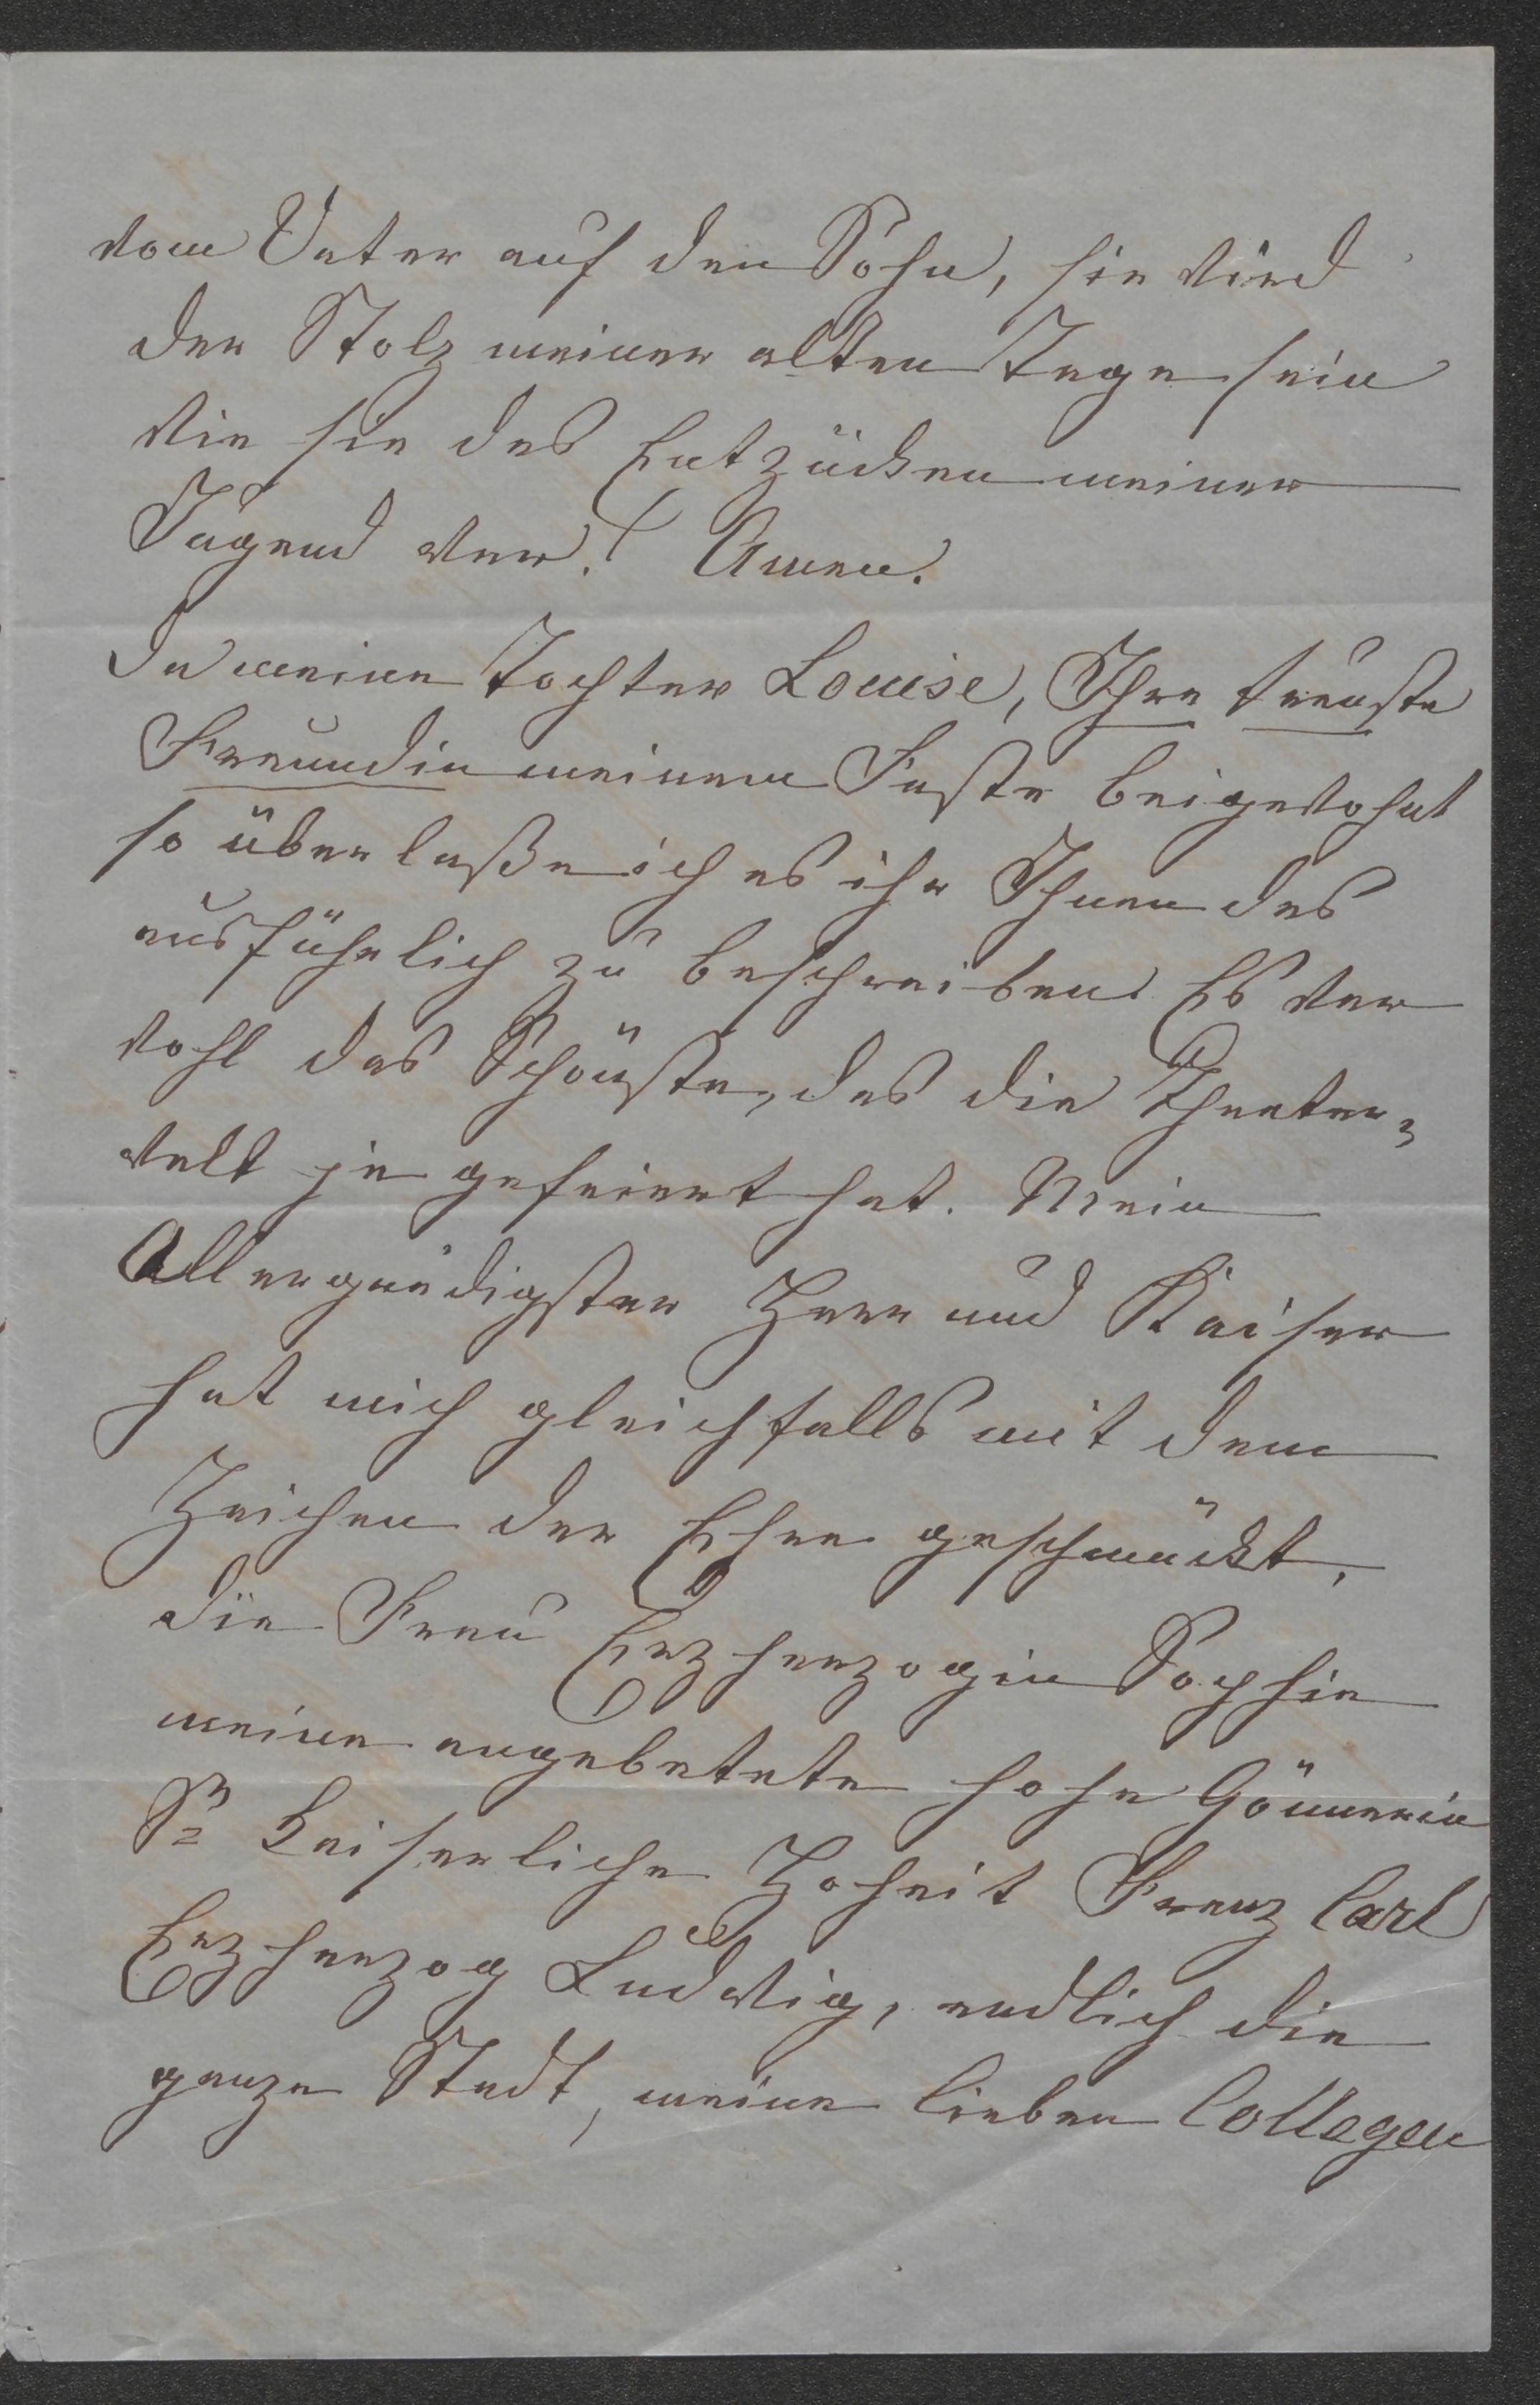 vom Vater auf den Sohn, sie wird
der Stolz meiner alten Tage sein
wie sie das Entzücken meiner
Jugend war! Amen.
Da meine Tochter Louise, Ihre treuste
Freundin meinem Feste beigewohnt
so überlaße ich es ihr Ihnen das
ausführlich zu beschreiben. Es war
wohl das Schönste, das die Theater-
welt je gefeiert hat. Mein
Allergnädigster Herr und Kaiser
hat mich gleichfalls mit dem
Zeichen der Ehre geschmückt,
die Frau Erzherzogin Sophie
meine angebetete hohe Gönnerin
Sr Kaiserliche Hoheit Franz Carl
Erzherzog Ludwig, endlich die
ganze Stadt, meine lieben Collegen